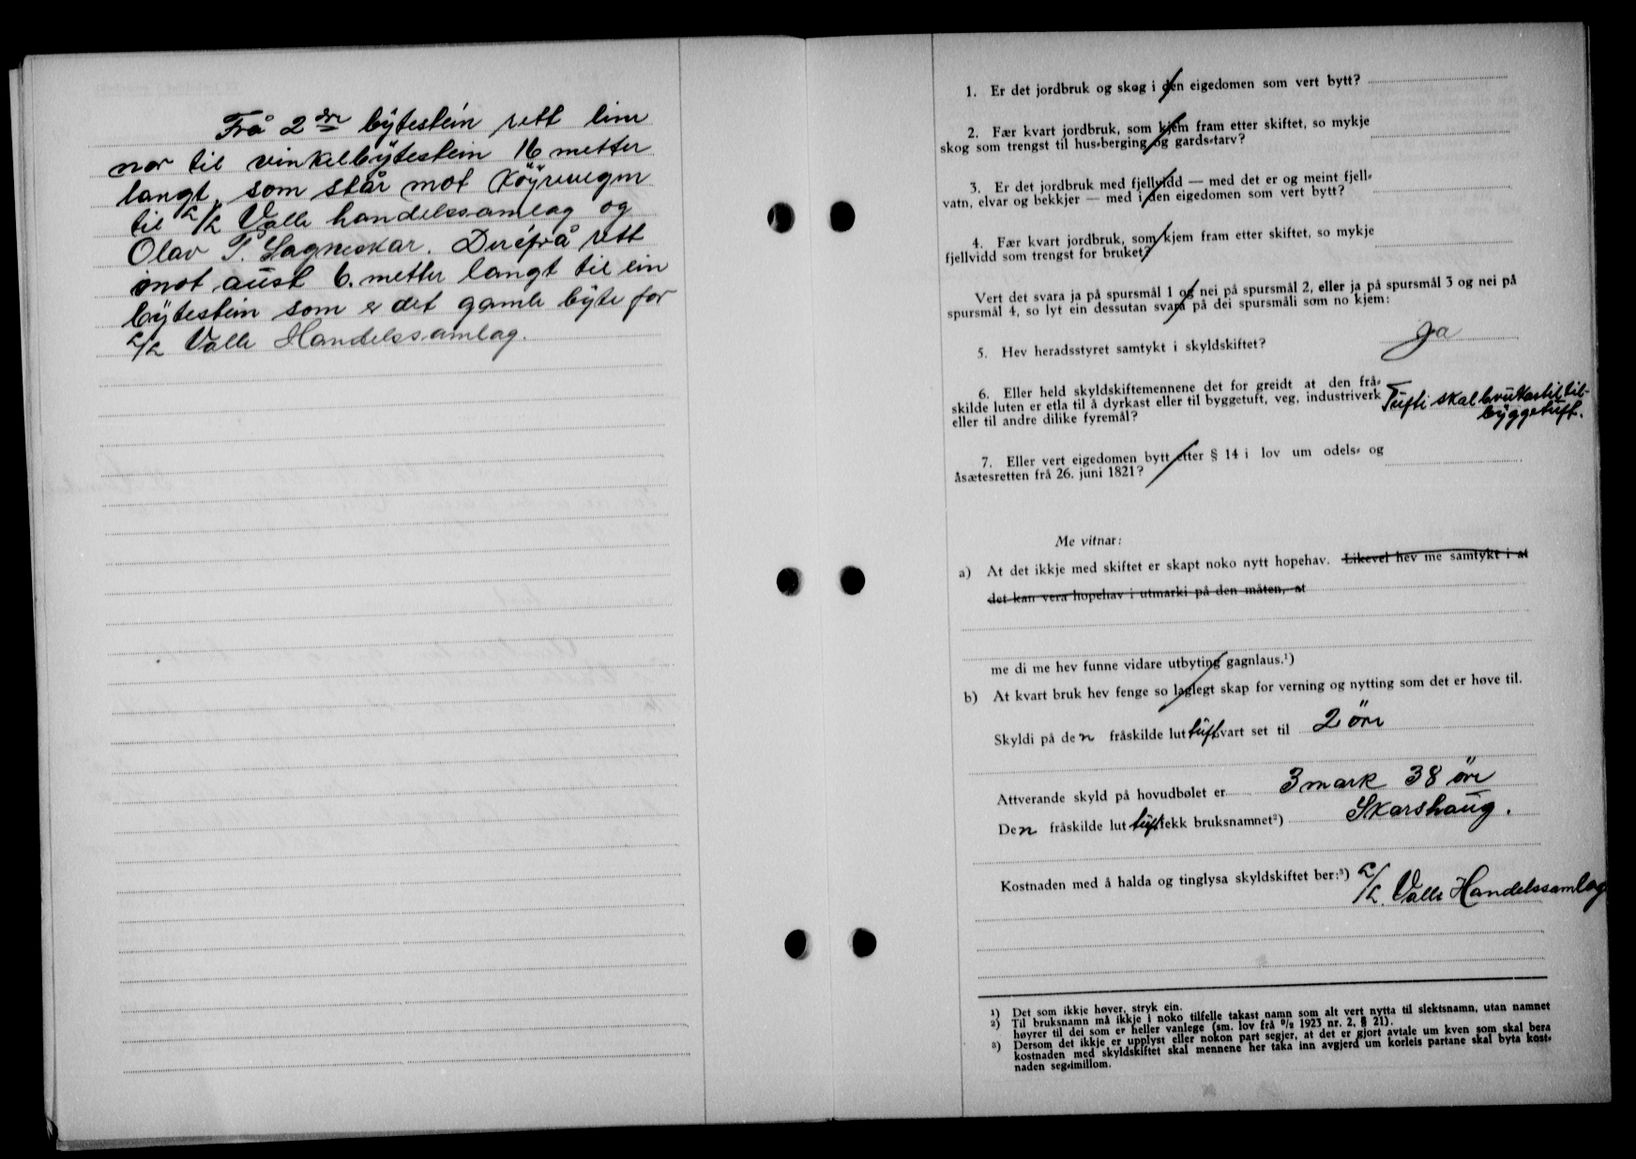 Frå 2 dre býtestein rett line
nor til vinkelbýtestein 16 metter
langt, som står mot Köýrevegen
til L/L Valle handelssamlag og
Olav P. Sagneskar. Derifrå rett
mot aust 6. metter langt til ein
býtestein som er det gamle býte for
L/L Valle Handelssamlag.
1. Er det jordbruk og skog i den eigedomen som vert bytt?
2. Fær kvart jordbruk, som kjem fram etter skiftet, so mykje
skog som trengst til hus-berging og gards-tarv?
3. Er det jordbruk med fjellvidd — med det er og meint fjell-
vatn, elvar og bekkjer — med i den eigedomen som vert bytt?
4. Fær kvart jordbruk, som kjem fram etter skiftet, so mykje
fjellvidd som trengst for bruket?
Vert det svara ja på spursmål 1 og nei på spursmål 2, eller ja på spursmål 3 og nei på
spursmål 4, so lyt ein dessutan svara på dei spursmåli som no kjem:
5. Hev heradsstyret samtykt i skyldskiftet? Ja
6. Eller held skyldskiftemennene det for greidt at den frå-
skilde luten er etla til å dyrkast eller til byggetuft, veg, industriverk
eller til andre dilike fyremål? Tufti skal brukast til til-
býggetuft.
7. Eller vert eigedomen bytt etter § 14 i lov um odels- og
åsætesretten frå 26. juni 1821?
Me vitnar:
a) At det ikkje med skiftet er skapt noko nytt hopehav. Likevel hev me samtykt i at
det kan vera hopehav i utmarki på den måten, at
me di me hev funne vidare utbyting gagnlaus.¹)
b) At kvart bruk hev fenge so laglegt skap for verning og nytting som det er høve til.
Skyldi på den fråskilde lut tuft vart set til 2 öre
Attverande skyld på hovudbølet er 3 mark 38 øre
Den fråskilde lut tuft fekk bruksnamnet²) Skarshaug.
Kostnaden med å halda og tinglysa skyldskiftet ber:³) L/L. Valle Handelssamlag
¹) Det som ikkje høver, stryk ein.
²) Til bruksnamn må ikkje i noko tilfelle takast namn som alt vert nytta til slektsnamn, utan namnet
høyrer til dei som er heller vanlege (sm. lov frå 9/2 1923 nr. 2, § 21).
³) Dersom det ikkje er upplyst eller nokon part segjer, at det er gjort avtale um kven som skal bera
kostnaden med skyldskiftet skal mennene her taka inn avgjerd um korleis partane skal byta kost-
naden seg-imillom.